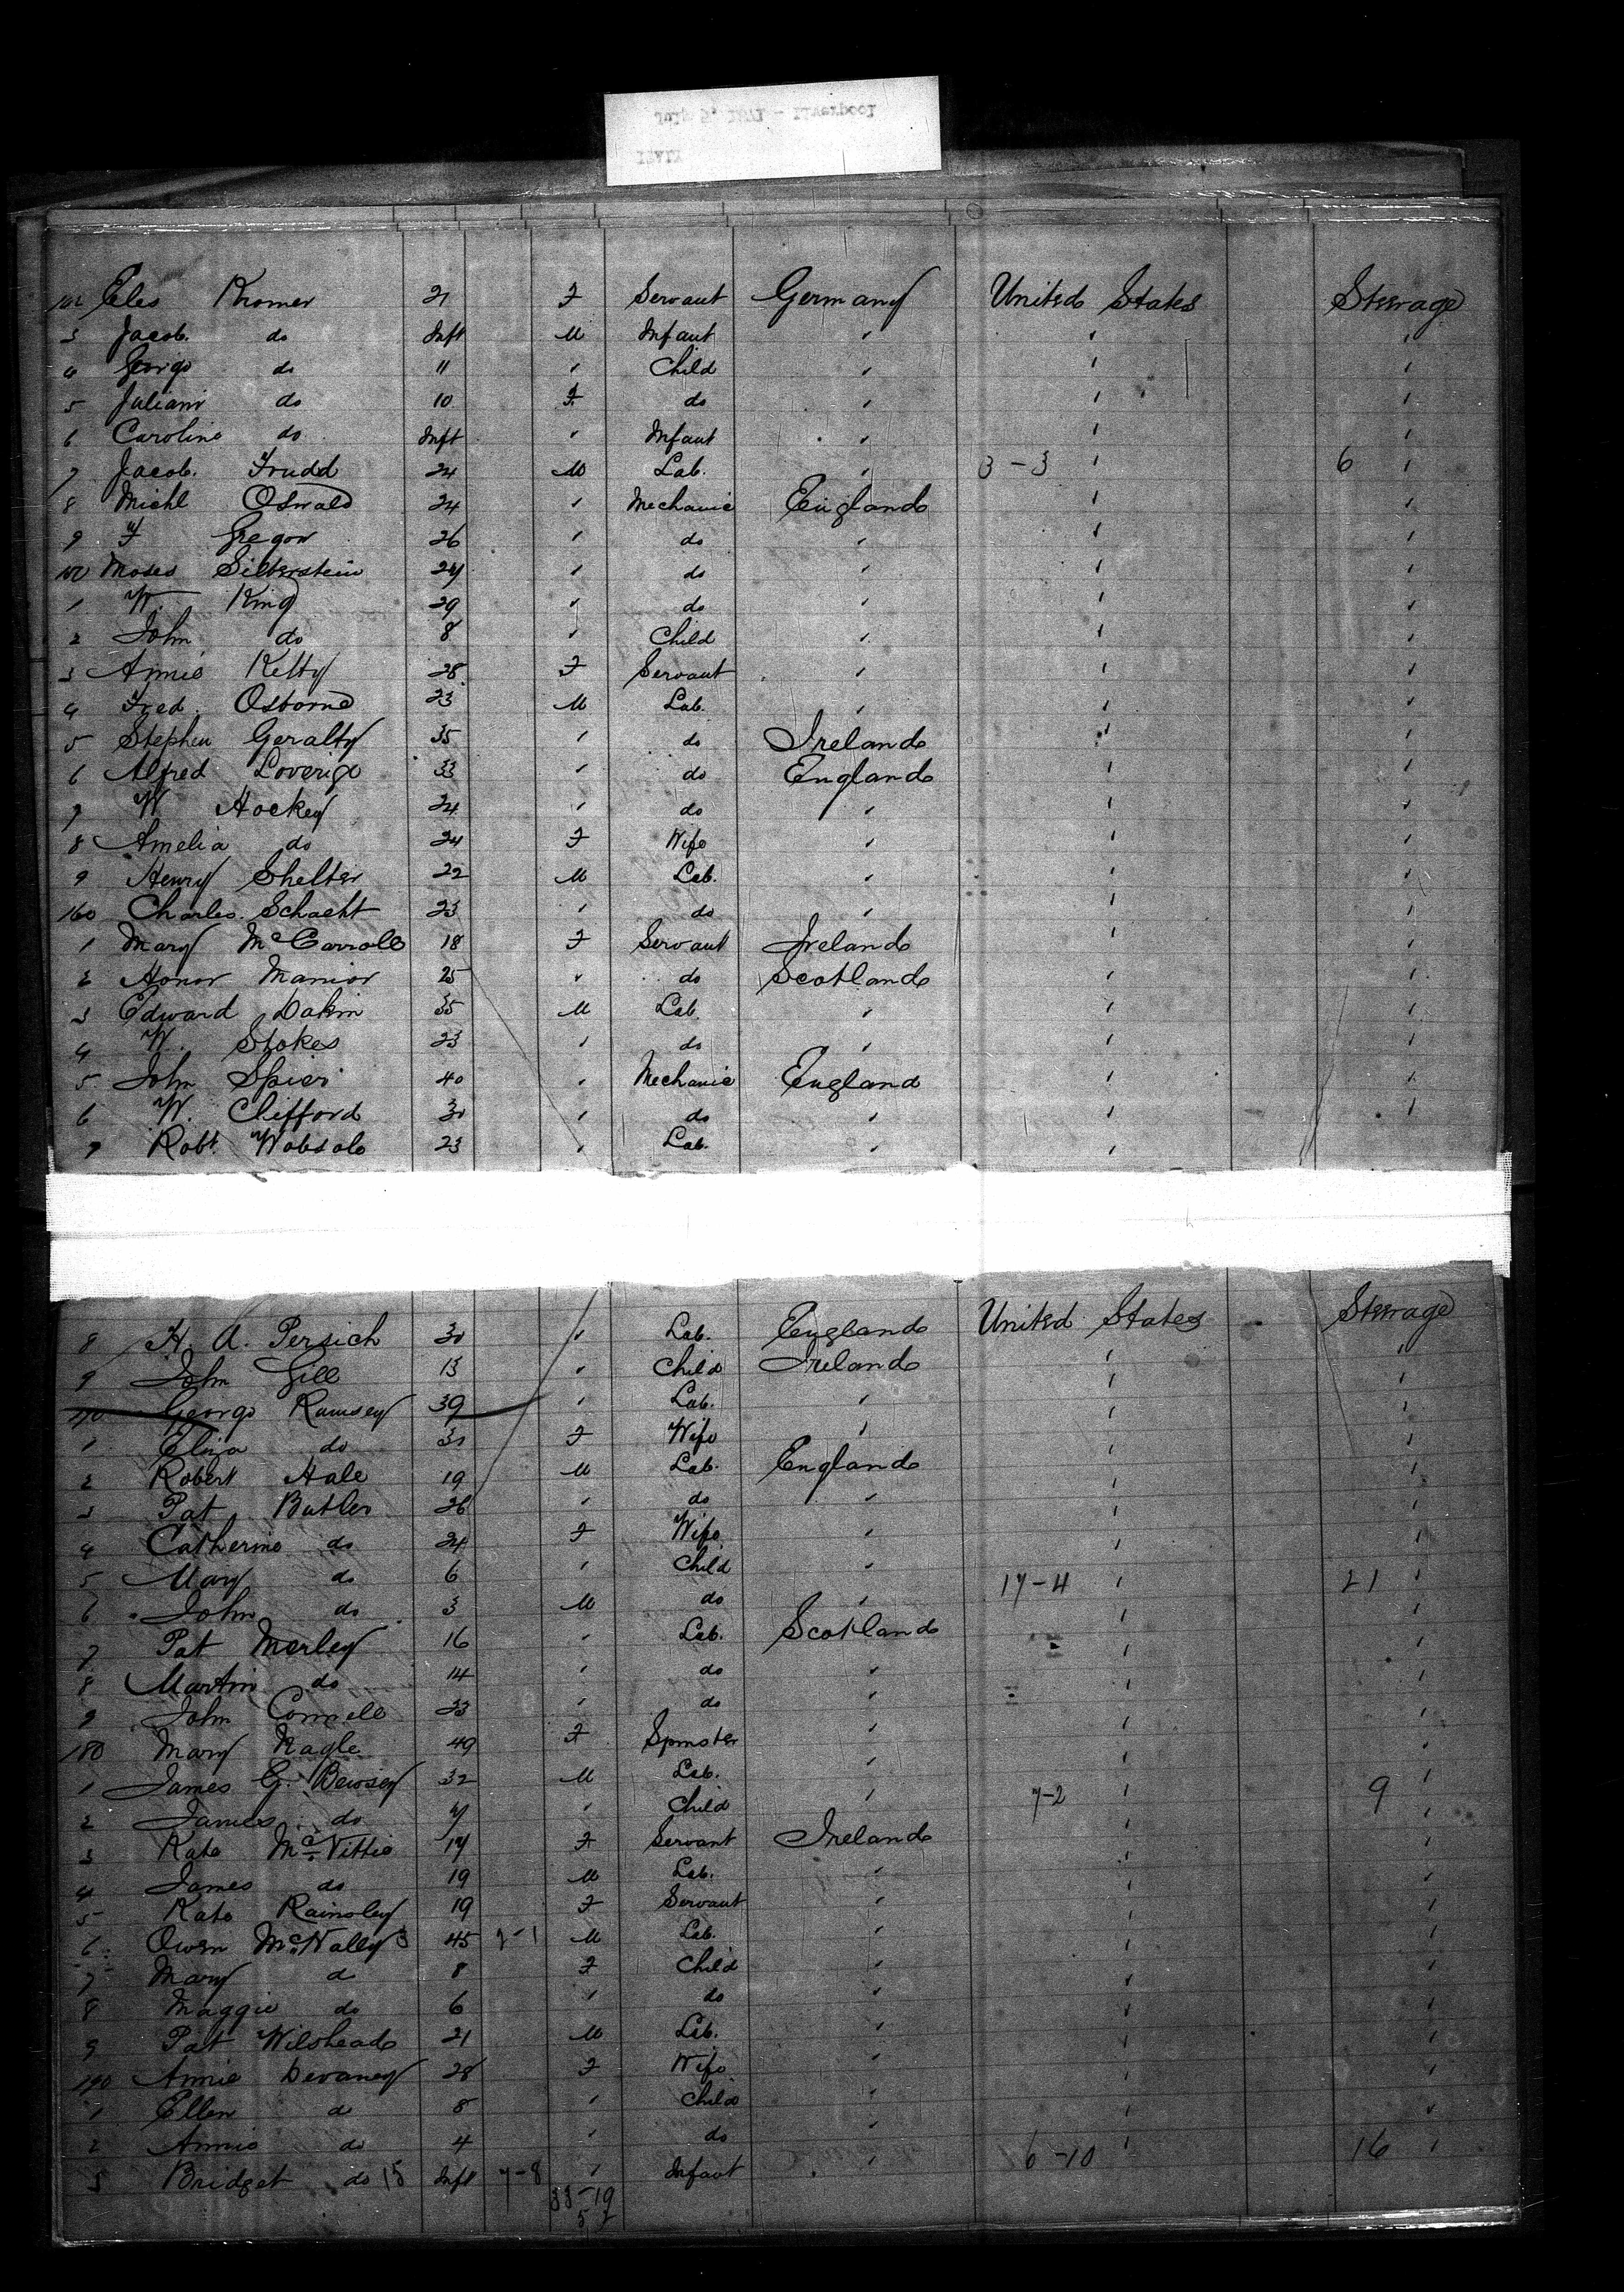 July 5, 1871 - Liverpool
142 Eles Kromer 21 F Servant Germany United States Steerage
3 Jacob. do Inft M Infant " " "
4 George do 11 " Child " " "
5 Juliani do 10 F. do " " "
6 Caroline do Inft " Infant " " "
7 Jacob. Trudd 24 M Lab. " 3-3 " 6 "
8 Michl Oswald 24 " Mechanic England " "
9 F Gregor 26 " do " " "
150 Moses Silberstein 24 " do " " "
1 W. King 29 " do " " "
2 John do 8 " Child " " "
3 Annie Kelty 28 F Servant " " "
4 Fred. Osborne 23 M Lab. " " "
5 Stephen Geralty 35 " do Ireland " "
6 Alfred Loverige 33 " do England " "
7 W Hockey 24 " do " " "
8 Amelia do 24 F Wife " " "
9 Henry Shelter 22 M Lab. " " "
160 Charles. Schacht 23 " do " " "
1 Mary McCarroll 18 F Servant Ireland " "
2 Honor Manior 25 " do Scotland " "
3 Edward Dakin 35 M Lab. " " "
4 W. Stokes 23 " do " " "
5 John Spier 40 " Mechanic England " "
6 W. Clifford 30 " do " " "
7 Robt. 23 " Lab. " "
8 H. A. Persich 30 " Lab. England United States Steerage
9 John Gill 13 " Child Ireland " "
170 George Ramsey 39 " Lab. " " "
1 Eliza do 30 F Wife " " "
2 Robert Hale 19 M Lab. England " "
3 Pat Butler 26 " do " " "
4 Catherine do 24 F Wife " " "
5 Mary do 6 " Child " 17-4 " 21 "
6 John do 3 M do " " "
7 Pat Morley 16 " Lab. Scotland " "
8 Martin do 14 " do " " "
9 John Connell 33 " do " " "
180 Mary Nagle 49 F Spinster " " "
1 James G. Bewsey 32 M Lab. " " "
2 James do " Child " 7-2 " 9 "
3 Kate McVittie 17 F Servant Ireland " "
4 James do 19 M Lab. " " "
5 Kate Rainsley 19 F Servant " " "
6 Owen McNally 3 45 2-1 M Lab. " " "
7 Mary d 8 F Child " " "
8 Maggie do 6 " do " " "
9 Pat Wilshead 21 M Lab. " " "
190 Annie Devaney 28 F Wife " " "
1 Ellen d 8 " Child " " "
2 Annie do 4 " do " 6-10 " 16 "
3 Bridget do 15 Inft 7-8 " Infant " "
33-19